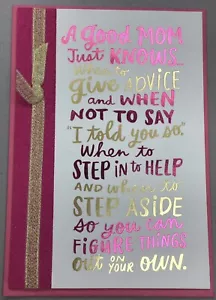 A Good MOM
Just KNOWS
when to
give ADVICE
and WHEN
NOT TO SAY
"I told you so."
When to
STEP in to HELP
AND when to
STEP ASIDE
so you can
FiGURE THiNGS
out ON YOUR OWN.